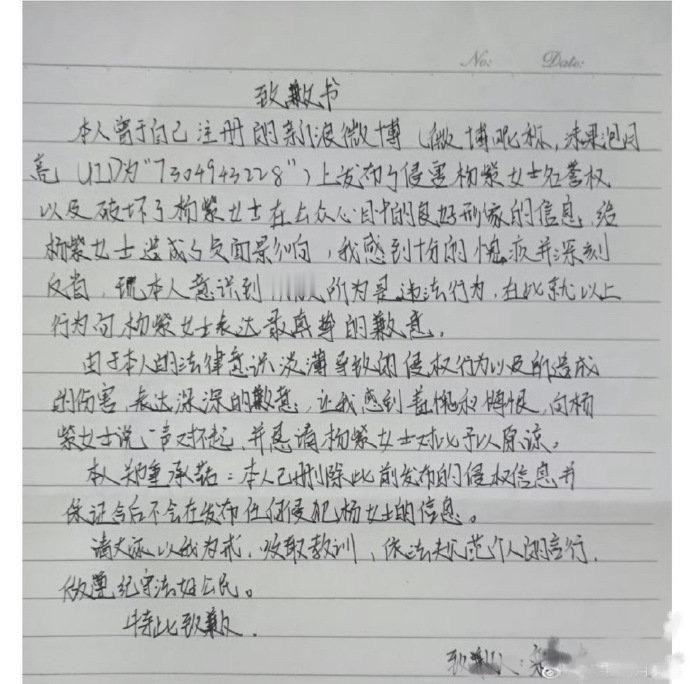 No: Date:
致歉书
本人曾于自己注册的新浪微博（微博昵称，未果泡月
亮 UID为"7304943228"）上发布了侵害杨紫女士名誉权
以及破坏了杨紫女士在公众心目中的良好形象的信息，给
杨紫女士造成了负面影响，我感到十分的愧疚并深刻
反省，现本人意识到所为是违法行为，在此就以上
行为向杨紫女士表达最真挚的歉意。
由于本人的法律意识淡薄导致的侵权行为以及所造成
的伤害，表达深深的歉意；让我感到羞愧和悔恨，向杨
紫女士说一声对不起，并恳请杨紫女士对此予以原谅。
本人郑重承诺：本人已删除此前发布的侵权信息并
保证今后不会在发布任何侵犯杨女士的信息。
请大家以我为戒，吸取教训，依法规范个人的言行，
做遵纪守法好公民。
特此致歉．
致歉人：